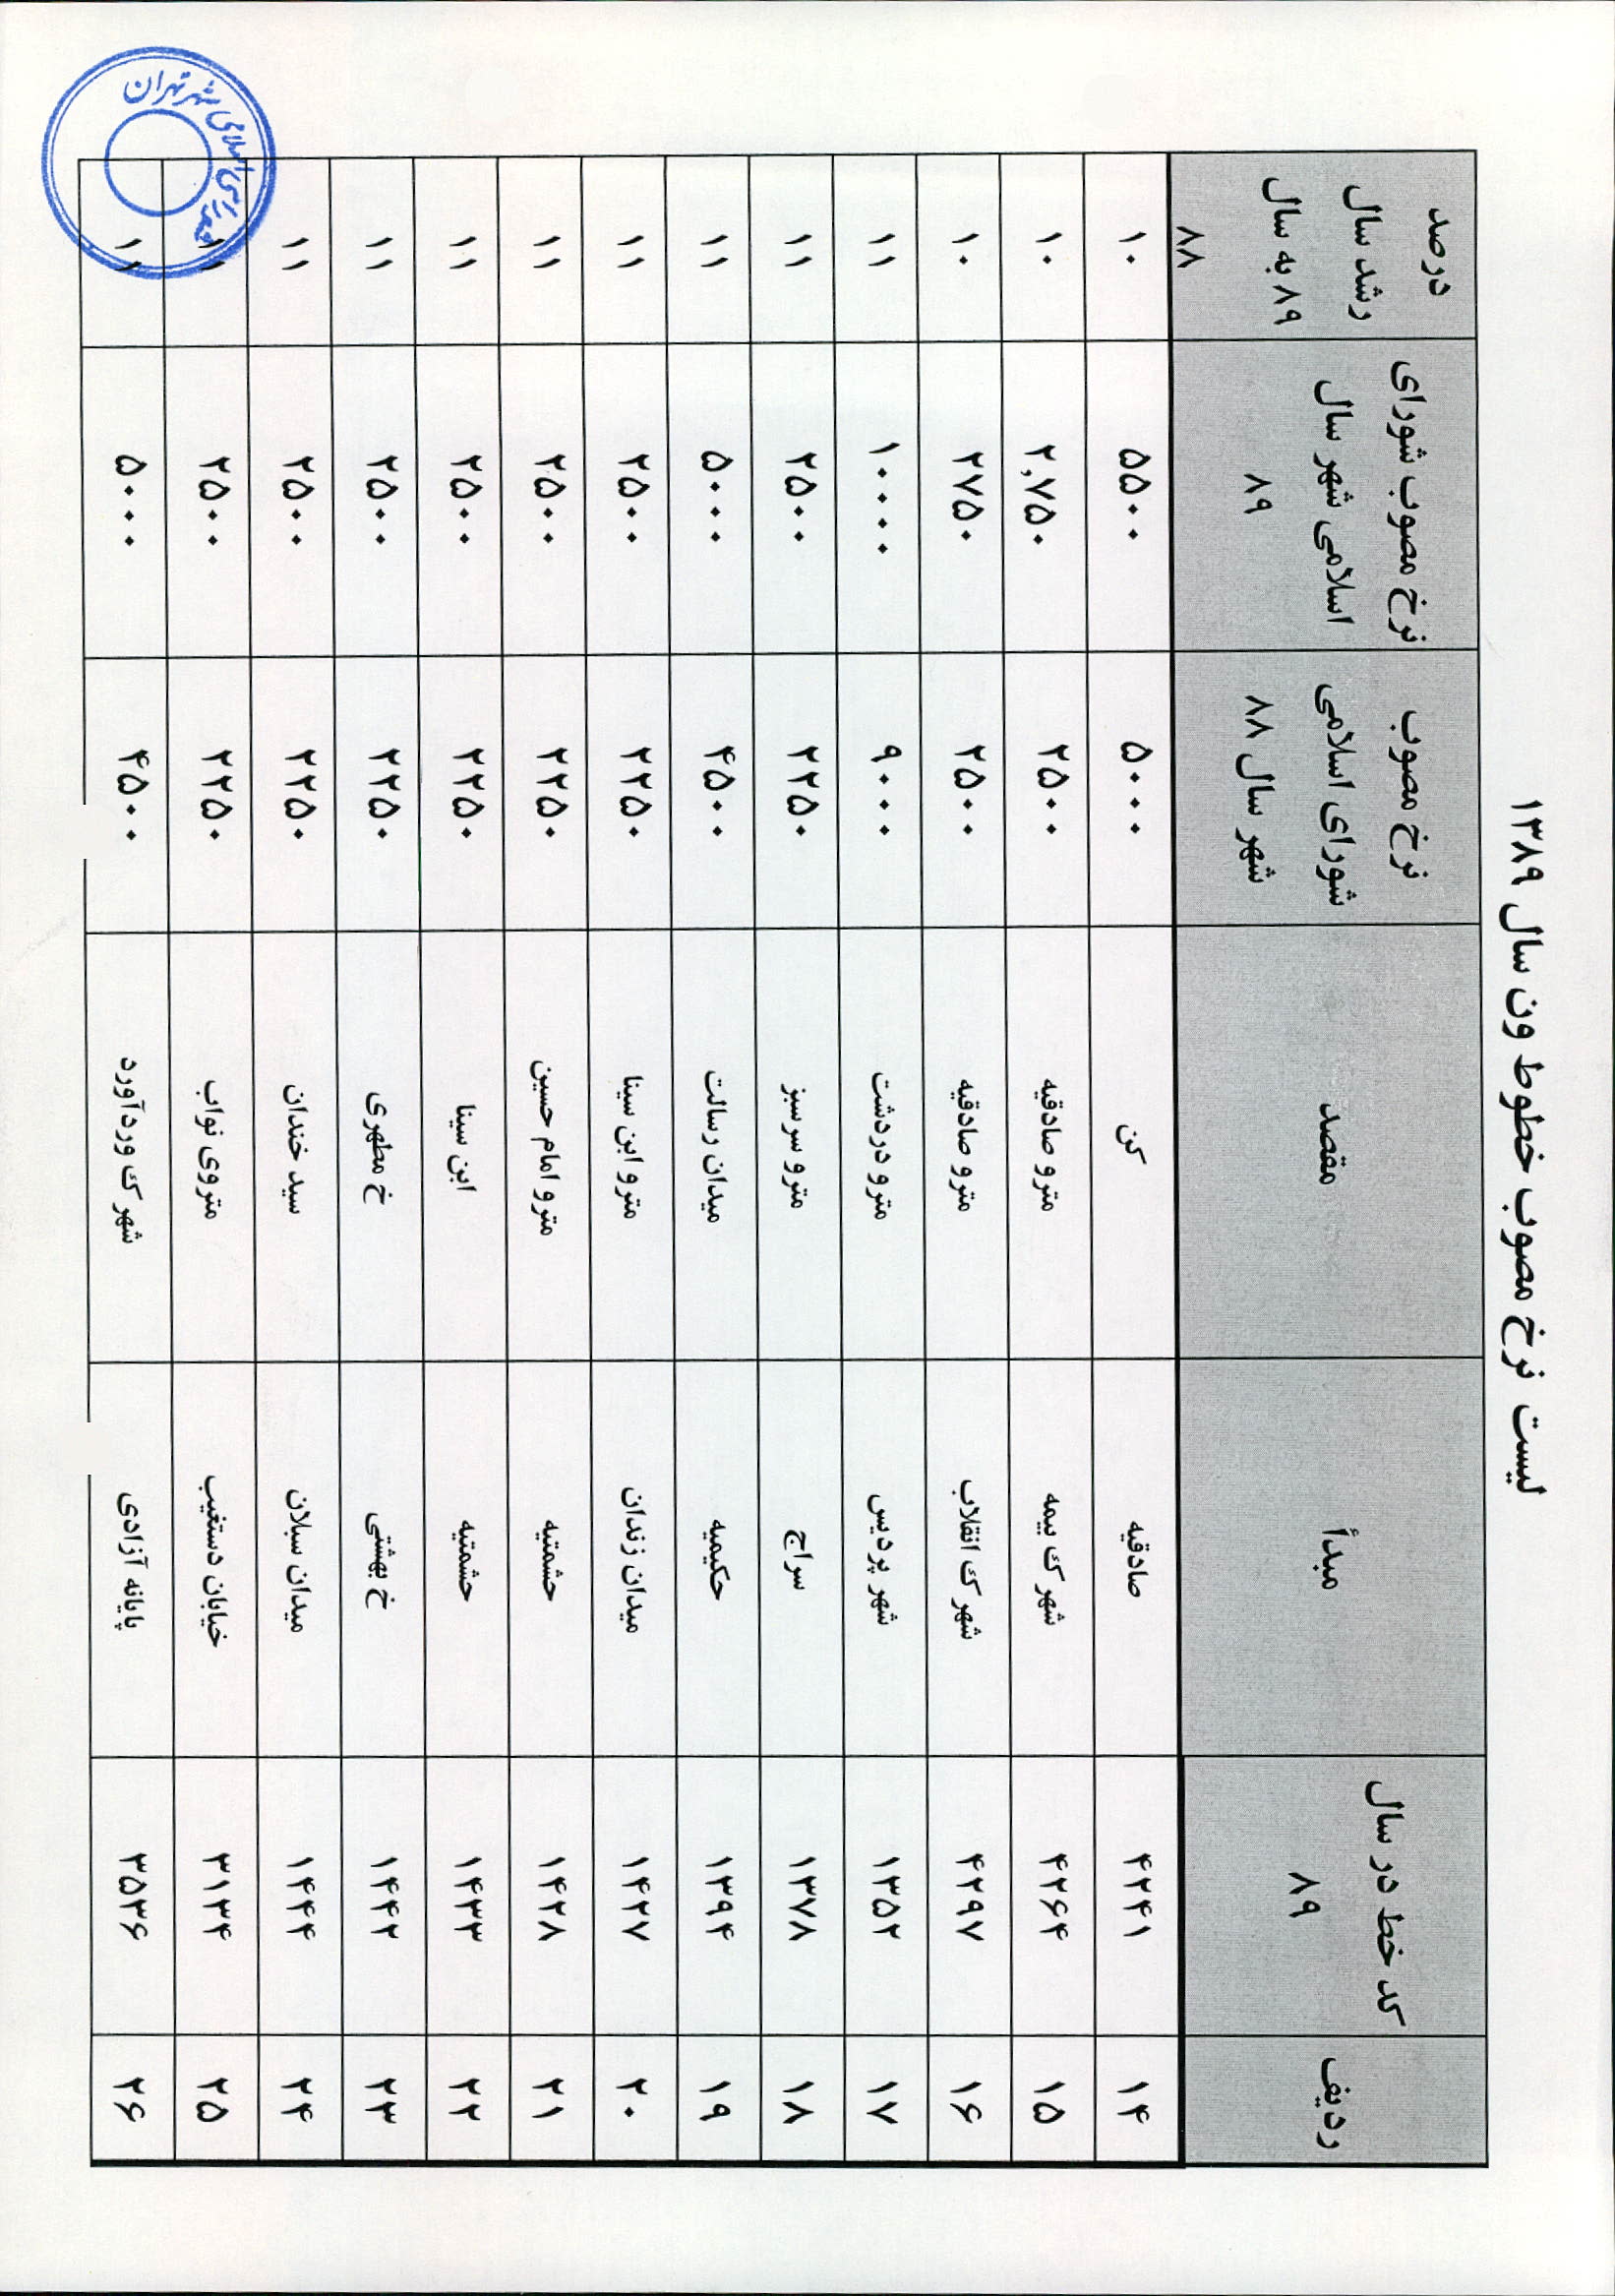 لیست نرخ مصوب خطوط ون سال ۱۳۸۹
ردیف کد خط در سال ۸۹ مبدأ مقصد نرخ مصوب شورای اسلامی شهر سال ۸۸ نرخ مصوب شورای اسلامی شهر سال ۸۹ درصد رشد سال ۸۹ به سال ۸۸
۱۴ ۴۲۴۱ صادقیه کن ۵۰۰۰ ۵۵۰۰ ۱۰
۱۵ ۴۲۶۴ شهرک بیمه مترو صادقیه ۲۵۰۰ ۲,۷۵۰ ۱۰
۱۶ ۴۲۹۷ شهرک انقلاب مترو صادقیه ۲۵۰۰ ۲۷۵۰ ۱۰
۱۷ ۱۳۵۲ شهر پردیس مترو دردشت ۹۰۰۰ ۱۰۰۰۰ ۱۱
۱۸ ۱۳۷۸ سراج مترو سرسبز ۲۲۵۰ ۲۵۰۰ ۱۱
۱۹ ۱۳۹۴ حکیمیه میدان رسالت ۴۵۰۰ ۵۰۰۰ ۱۱
۲۰ ۱۴۲۷ میدان زندان مترو ابن سینا ۲۲۵۰ ۲۵۰۰ ۱۱
۲۱ ۱۴۲۸ حشمتیه مترو امام حسین ۲۲۵۰ ۲۵۰۰ ۱۱
۲۲ ۱۴۳۳ حشمتیه ابن سینا ۲۲۵۰ ۲۵۰۰ ۱۱
۲۳ ۱۴۴۲ خ بهشتی خ مطهری ۲۲۵۰ ۲۵۰۰ ۱۱
۲۴ ۱۴۴۴ میدان سبلان سید خندان ۲۲۵۰ ۲۵۰۰ ۱۱
۲۵ ۳۱۳۴ خیابان دستغیب متروی نواب ۲۲۵۰ ۲۵۰۰ ۱۱
۲۶ ۳۵۳۶ پایانه آزادی شهرک وردآورد ۴۵۰۰ ۵۰۰۰ ۱۱
شورای اسلامی شهر تهران